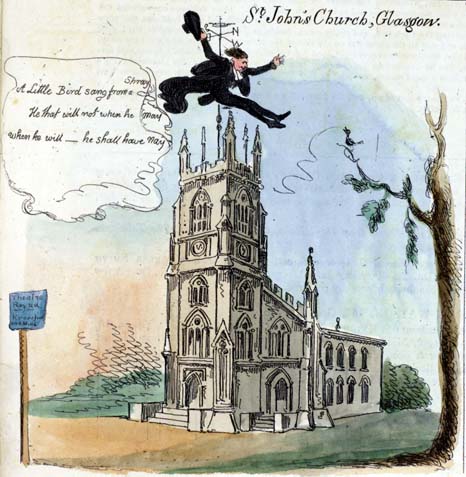 St. John's Church, Glasgow.
N
Spray
A Little Bird sang from a
He that will not when he may
when he will — he shall have nay
Theatre
Royal